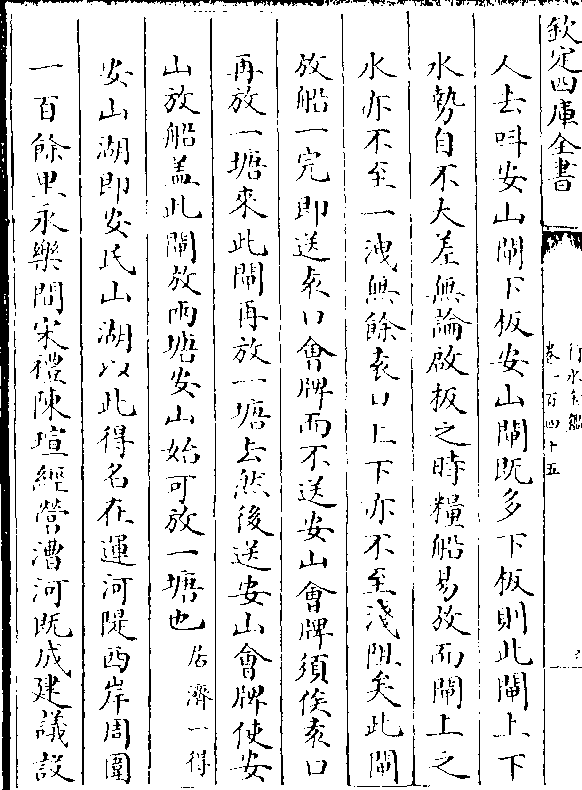 欽定四庫全書
行水金鑑
卷一百四十五
人去呌安山閘下板安山閘既多下板則此閘上下
水勢自不大差無論啟板之時糧船易放而閘上之
水亦不至一洩無餘袁口上下亦不至淺阻矣此閘
放船一完即送袁口會牌而不送安山會牌須俟袁口
再放一塘來此閘再放一塘去然後送安山會牌使安
山放船葢此閘放两塘安山始可放一塘也居濟一得
安山湖即安民山湖以此得名在運河隄西岸周圍
一百餘里永樂間宋禮陳瑄經營漕河既成建議設